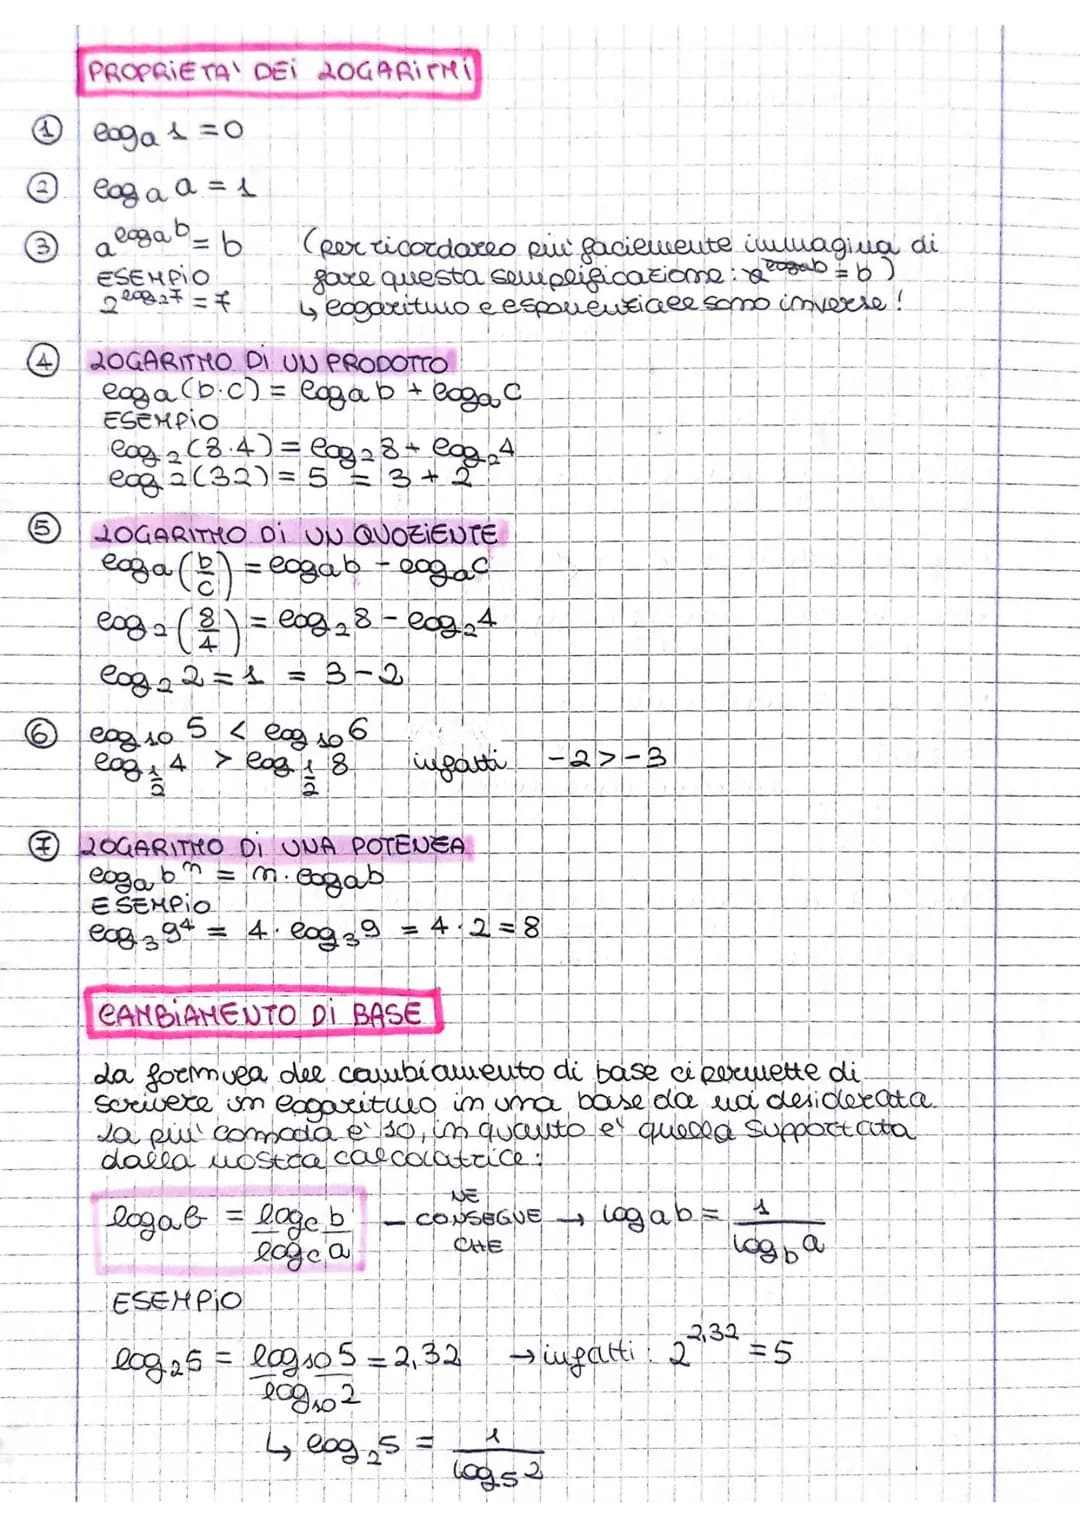 PROPRIETA' DEI LOGARITMI
① log_a 1 = 0
② log_a a = 1
③ a^(log_a b) = b (per ricordarlo più facilmente immagina di
ESEMPIO fare questa semplificazione: a^(log_a b) = b)
2^(log_2 7) = 7 ↳ logaritmo e esponenziale sono inverse!
④ LOGARITMO DI UN PRODOTTO
log_a (b·c) = log_a b + log_a c
ESEMPIO
log_2 (8·4) = log_2 8 + log_2 4
log_2 (32) = 5 = 3 + 2
⑤ LOGARITMO DI UN QUOZIENTE
log_a (b/c) = log_a b - log_a c
log_2 (8/4) = log_2 8 - log_2 4
log_2 2 = 1 = 3 - 2
⑥ log_10 5 < log_10 6
log_1/2 4 > log_1/2 8 infatti -2 > -3
⑦ LOGARITMO DI UNA POTENZA
log_a b^n = n · log_a b
ESEMPIO
log_3 9^4 = 4 · log_3 9 = 4 · 2 = 8
CAMBIAMENTO DI BASE
La formula del cambiamento di base ci permette di
scrivere un logaritmo in una base da noi desiderata
La più comoda è 10, in quanto è quella supportata
dalla nostra calcolatrice:
log_a b = log_c b / log_c a – NE CONSEGUE CHE → log_a b = 1 / log_b a
ESEMPIO
log_2 5 = log_10 5 / log_10 2 = 2,32 → infatti: 2^2,32 = 5
↳ log_2 5 = 1 / log_5 2